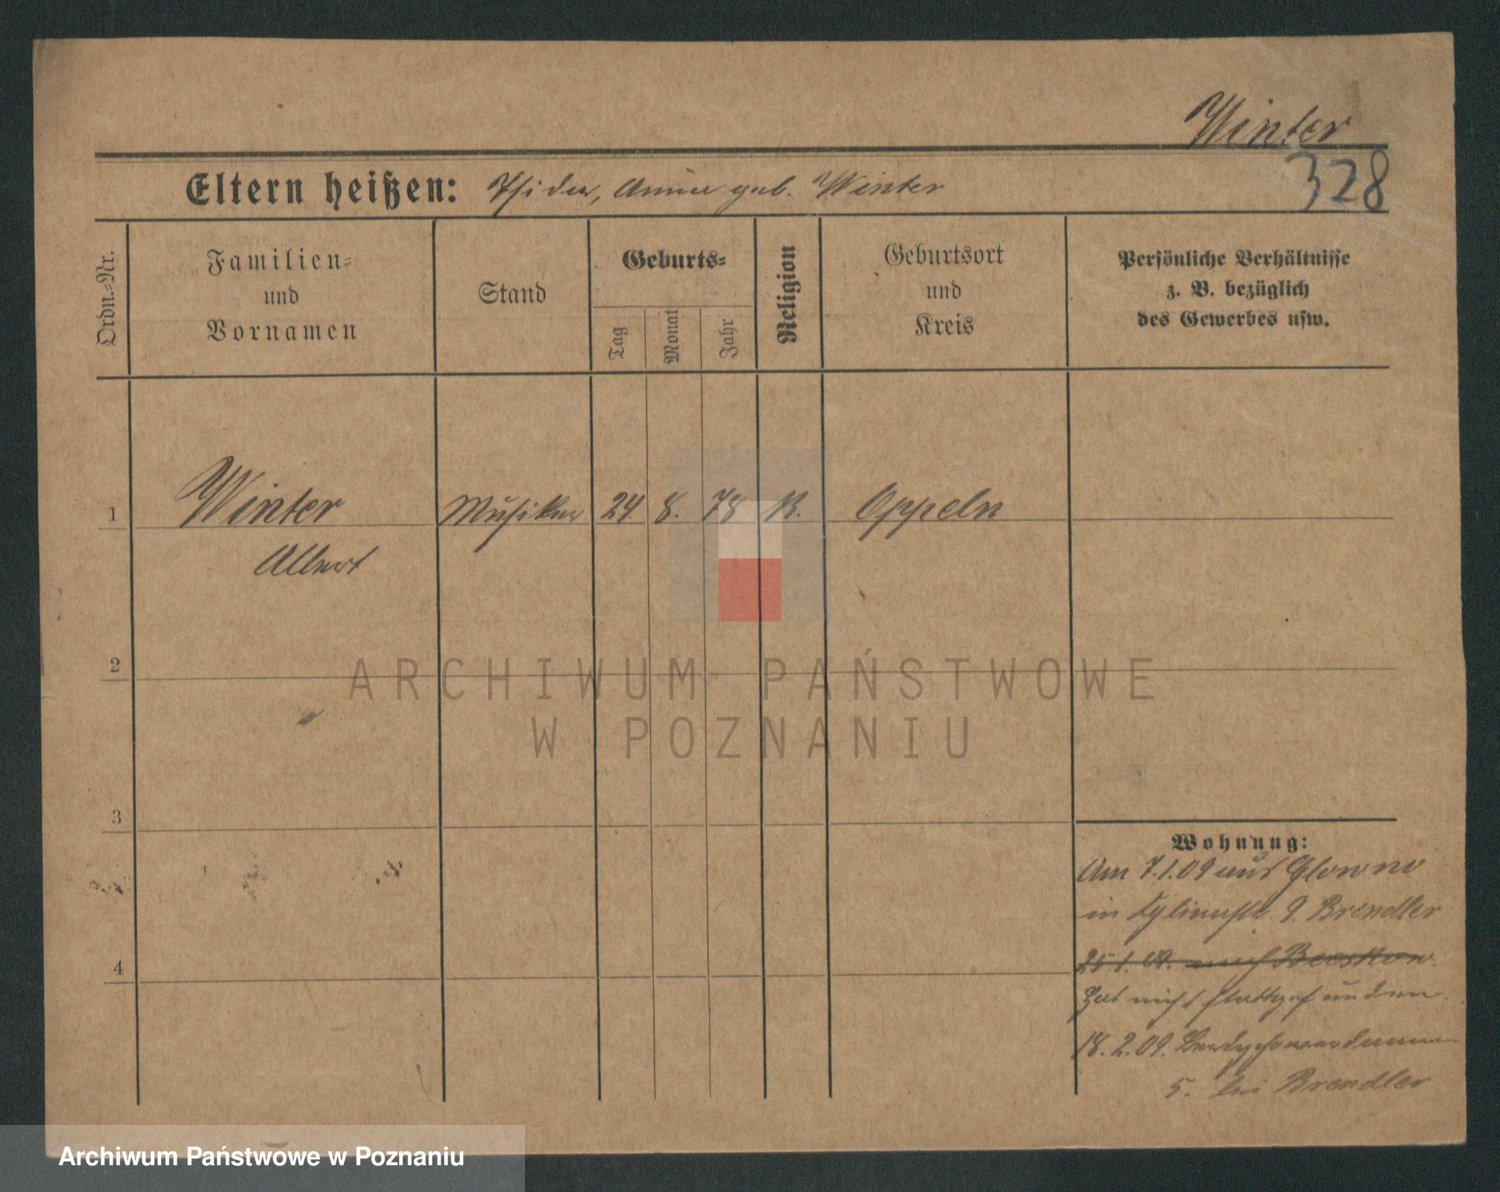 Winter
328
Eltern heißen: Isidor, Anna geb. Winter
Ordn.-Nr.
Familien-
und
Vornamen
Stand
Geburts-
Tag
Monat
Jahr
Religion
Geburtsort
und
Kreis
Persönliche Verhältnisse
z. B. bezüglich
des Gewerbes usw.
1 Winter Musiker 24. 8. 78 K. Oppeln
Albert
2
3
4
Wohnung:
Am 7.1.09 aus Glowno
in 9 Brendler
25.1.09. nach Beeskow.
Hat nicht stattgefunden.
18.2.09.
5. bei Brendler
ARCHIWUM PAŃSTWOWE
W POZNANIU
Archiwum Państwowe w Poznaniu